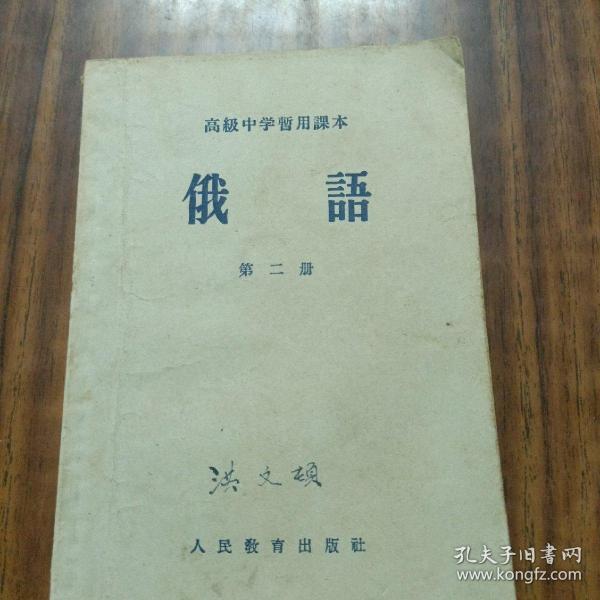 高級中学暫用課本
俄語
第二册
洪文碩
人民教育出版社
孔夫子旧書网
www.kongfz.com